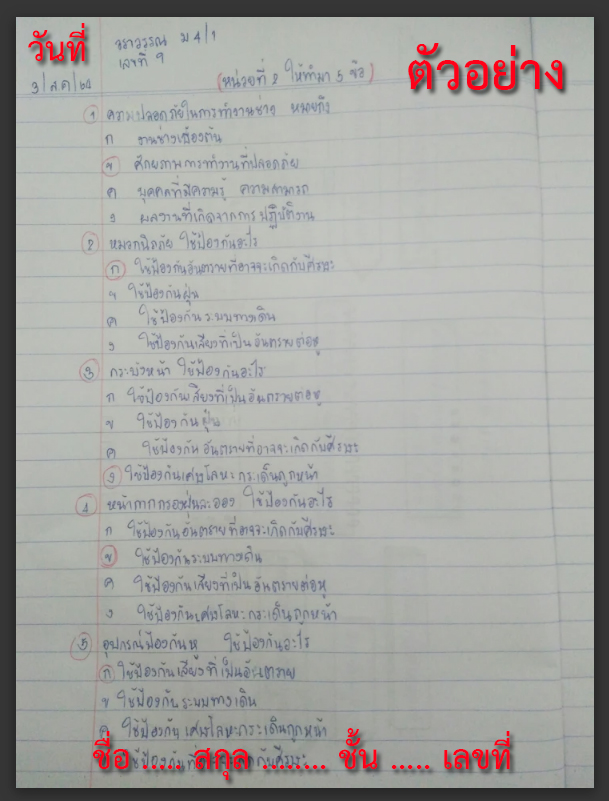 วันที่
วราวรรณ ม 4/1
เลขที่ 9
ตัวอย่าง
3/ส.ค/64
(หน่วยที่ 2 ให้ทำมา 5 ข้อ)
1 ความปลอดภัยในการทำงานช่าง หมายถึง
ก งานช่างเบื้องต้น
ข ศักยภาพการทำงานที่ปลอดภัย
ค บุคคลที่มีความรู้ ความสามารถ
ง ผลงานที่เกิดจากการปฏิบัติงาน
2 หมวกนิรภัย ใช้ป้องกันอะไร
ก ใช้ป้องกันอันตรายที่อาจจะเกิดกับศีรษะ
ข ใช้ป้องกันฝุ่น
ค ใช้ป้องกันระบบทางเดิน
ง ใช้ป้องกันเสียงที่เป็นอันตรายต่อหู
3 กระบังหน้า ใช้ป้องกันอะไร
ก ใช้ป้องกันเสียงที่เป็นอันตรายต่อหู
ข ใช้ป้องกันฝุ่น
ค ใช้ป้องกันอันตรายที่อาจจะเกิดกับศีรษะ
ง ใช้ป้องกันเศษโลหะกระเด็นถูกหน้า
4 หน้ากากกรองฝุ่นละออง ใช้ป้องกันอะไร
ก ใช้ป้องกันอันตรายที่อาจจะเกิดกับศีรษะ
ข ใช้ป้องกันระบบทางเดิน
ค ใช้ป้องกันเสียงที่เป็นอันตรายต่อหู
ง ใช้ป้องกันเศษโลหะกระเด็นถูกหน้า
5 อุปกรณ์ป้องกันหู ใช้ป้องกันอะไร
ก ใช้ป้องกันเสียงที่เป็นอันตราย
ข ใช้ป้องกันระบบทางเดิน
ค ใช้ป้องกันเศษโลหะกระเด็นถูกหน้า
ใช้ป้องกันที่ กับศีรษะ
ชื่อ ..... สกุล ........ ชั้น ..... เลขที่